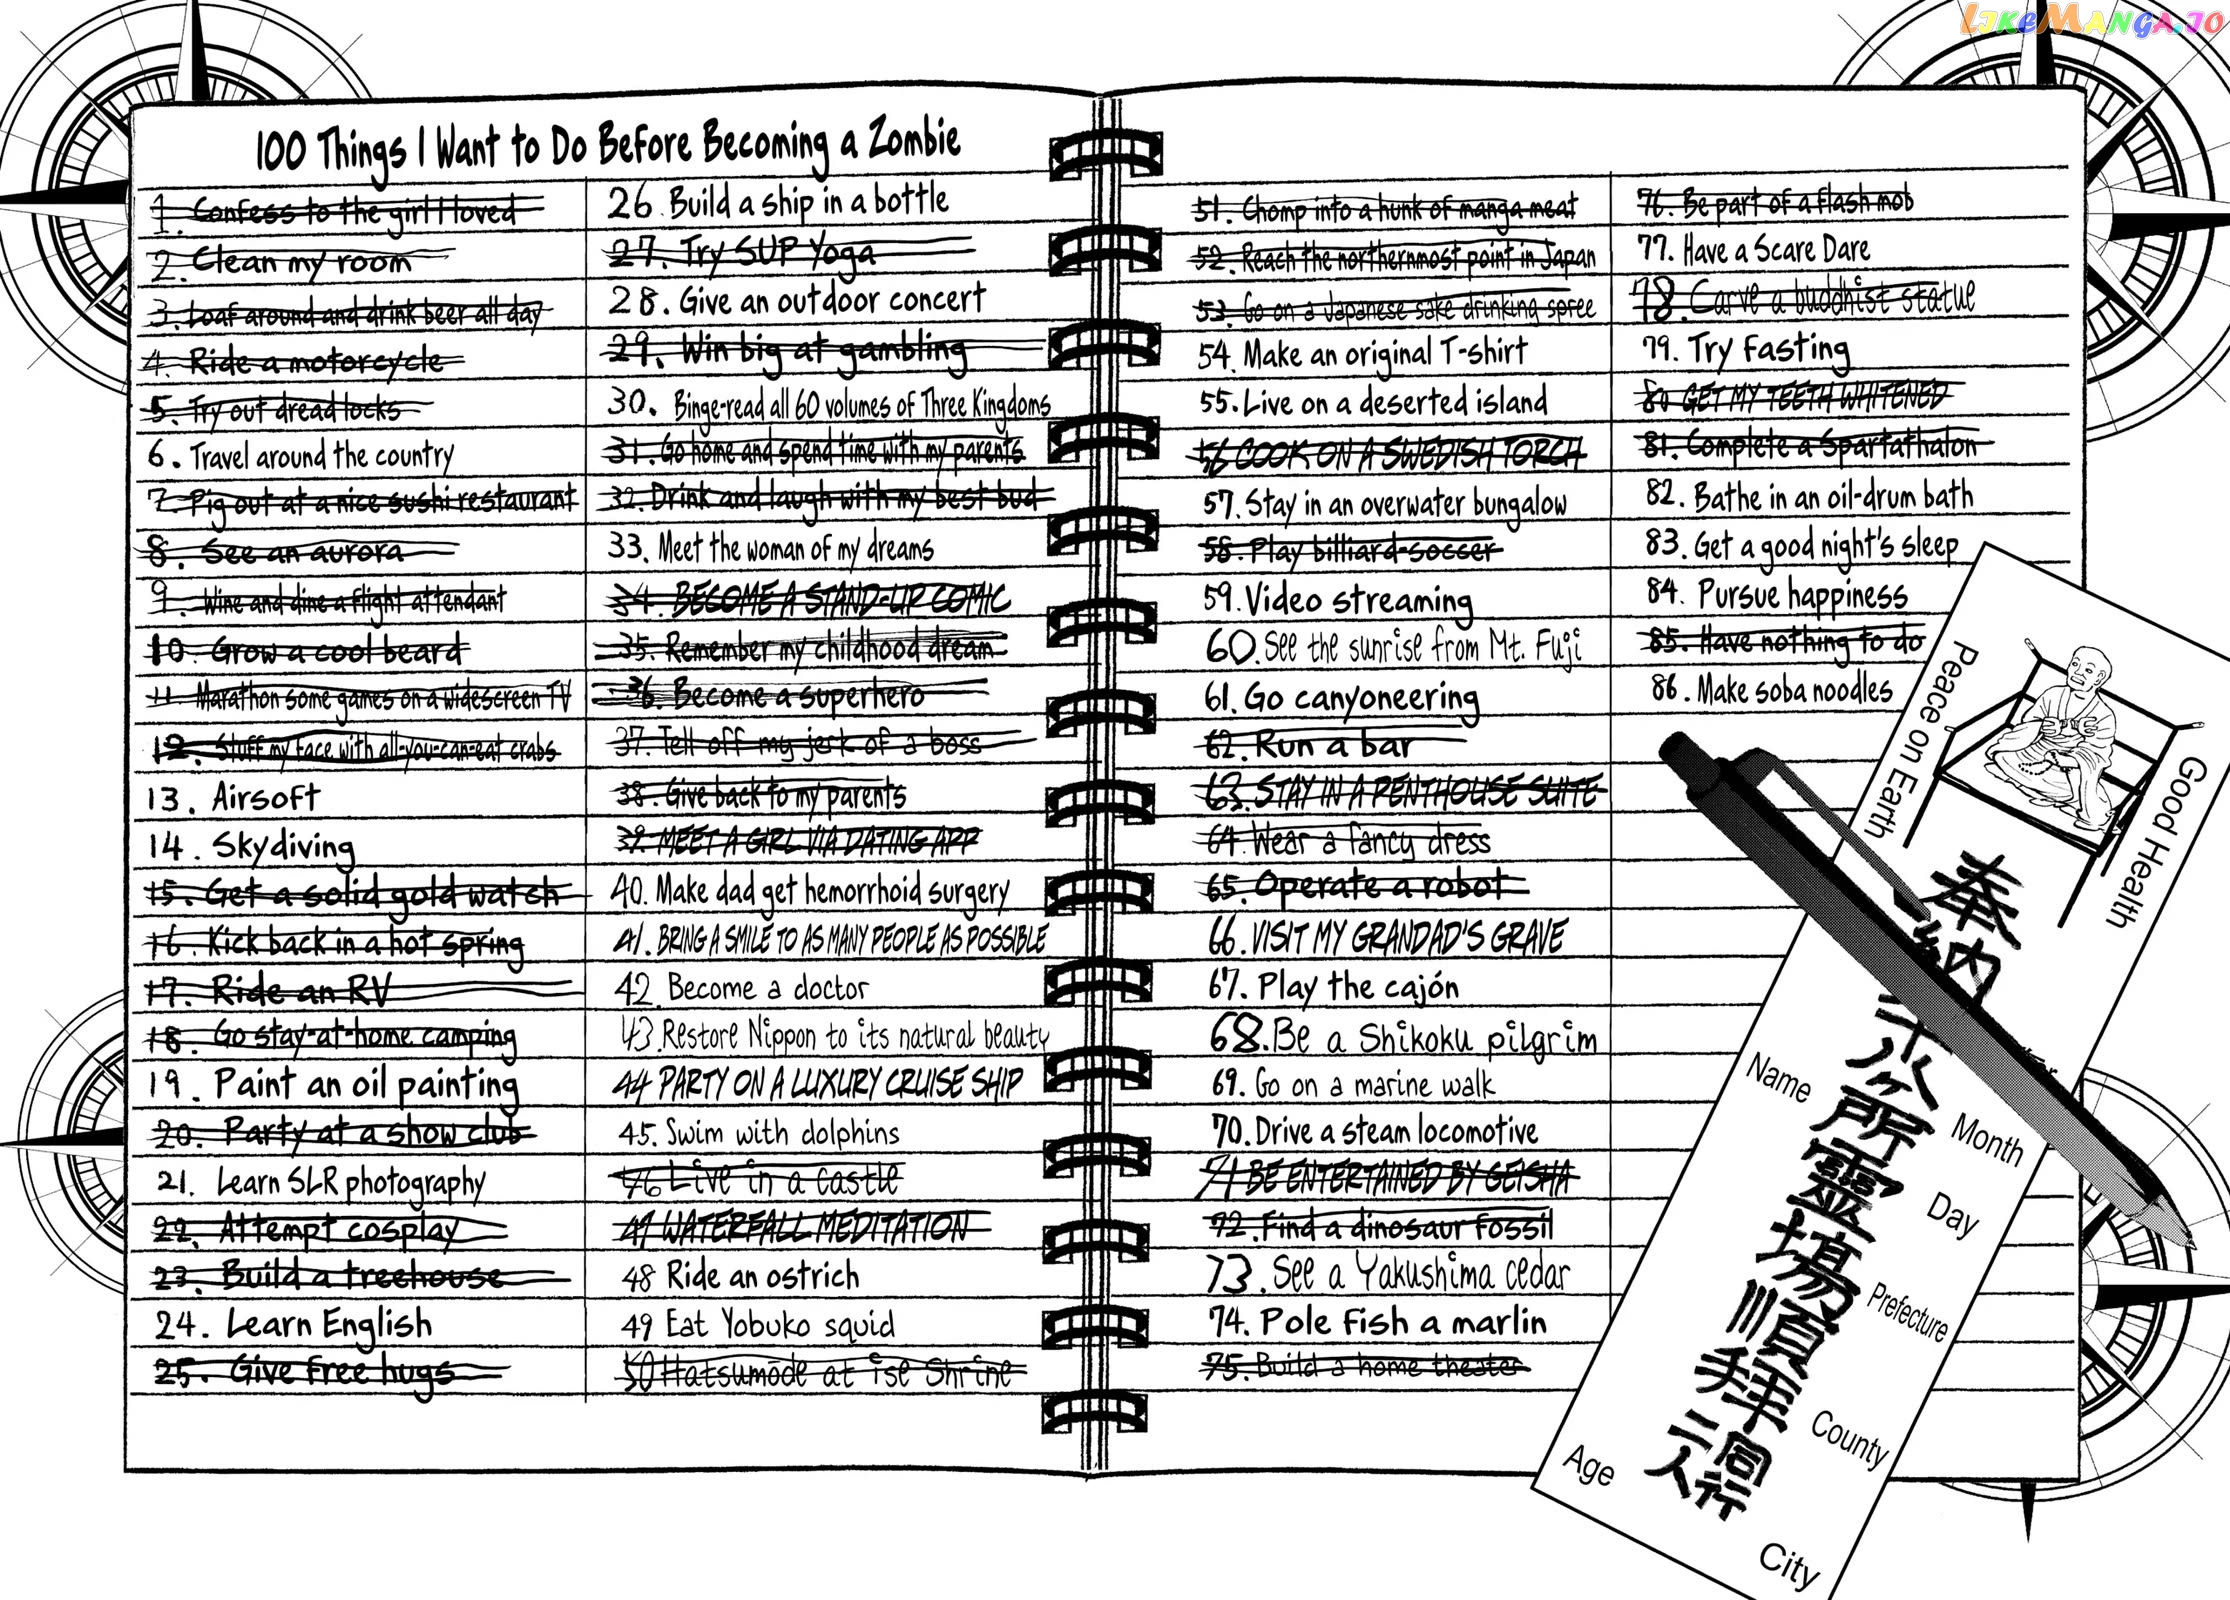 LIKEMANGA.IO
100 Things I Want to Do Before Becoming a Zombie
1. Confess to the girl I loved
2. Clean my room
3. Loaf around and drink beer all day
4. Ride a motorcycle
5. Try out dreadlocks
6. Travel around the country
7. Pig out at a nice sushi restaurant
8. See an aurora
9. Wine and dine a flight attendant
10. Grow a cool beard
11. Marathon some games on a widescreen TV
12. Stuff my face with all-you-can-eat crabs
13. Airsoft
14. Skydiving
15. Get a solid gold watch
16. Kick back in a hot spring
17. Ride an RV
18. Go stay-at-home camping
19. Paint an oil painting
20. Party at a show club
21. Learn SLR photography
22. Attempt cosplay
23. Build a treehouse
24. Learn English
25. Give free hugs
26. Build a ship in a bottle
27. Try SUP Yoga
28. Give an outdoor concert
29. Win big at gambling
30. Binge-read all 60 volumes of Three Kingdoms
31. Go home and spend time with my parents
32. Drink and laugh with my best bud
33. Meet the woman of my dreams
34. BECOME A STAND-UP COMIC
35. Remember my childhood dream
36. Become a superhero
37. Tell off my jerk of a boss
38. Give back to my parents
39. MEET A GIRL VIA DATING APP
40. Make dad get hemorrhoid surgery
41. BRING A SMILE TO AS MANY PEOPLE AS POSSIBLE
42. Become a doctor
43. Restore Nippon to its natural beauty
44 PARTY ON A LUXURY CRUISE SHIP
45. Swim with dolphins
46 Live in a castle
47 WATERFALL MEDITATION
48 Ride an ostrich
49 Eat Yobuko squid
50 Hatsumode at ise Shrine
51. Chomp into a hunk of manga meat
52. Reach the northernmost point in Japan
53. Go on a Japanese sake drinking spree
54. Make an original T-shirt
55. Live on a deserted island
56 COOK ON A SWEDISH TORCH
57. Stay in an overwater bungalow
58. Play billiard-soccer
59. Video streaming
60. See the sunrise from Mt. Fuji
61. Go canyoneering
62. Run a bar
63. STAY IN A PENTHOUSE SUITE
64. Wear a fancy dress
65. Operate a robot
66. VISIT MY GRANDAD'S GRAVE
67. Play the cajón
68. Be a Shikoku pilgrim
69. Go on a marine walk
70. Drive a steam locomotive
71 BE ENTERTAINED BY GEISHA
72. Find a dinosaur fossil
73. See a Yakushima cedar
74. Pole fish a marlin
75. Build a home theater
76. Be part of a flash mob
77. Have a Scare Dare
78. Carve a buddhist statue
79. Try fasting
80 GET MY TEETH WHITENED
81. Complete a Spartathalon
82. Bathe in an oil-drum bath
83. Get a good night's sleep
84. Pursue happiness
85. Have nothing to do
86. Make soba noodles
Peace on Earth
Good Health
奉納
八ヶ所霊場順拝
同行
二人
Name
Month
Day
Prefecture
County
City
Age